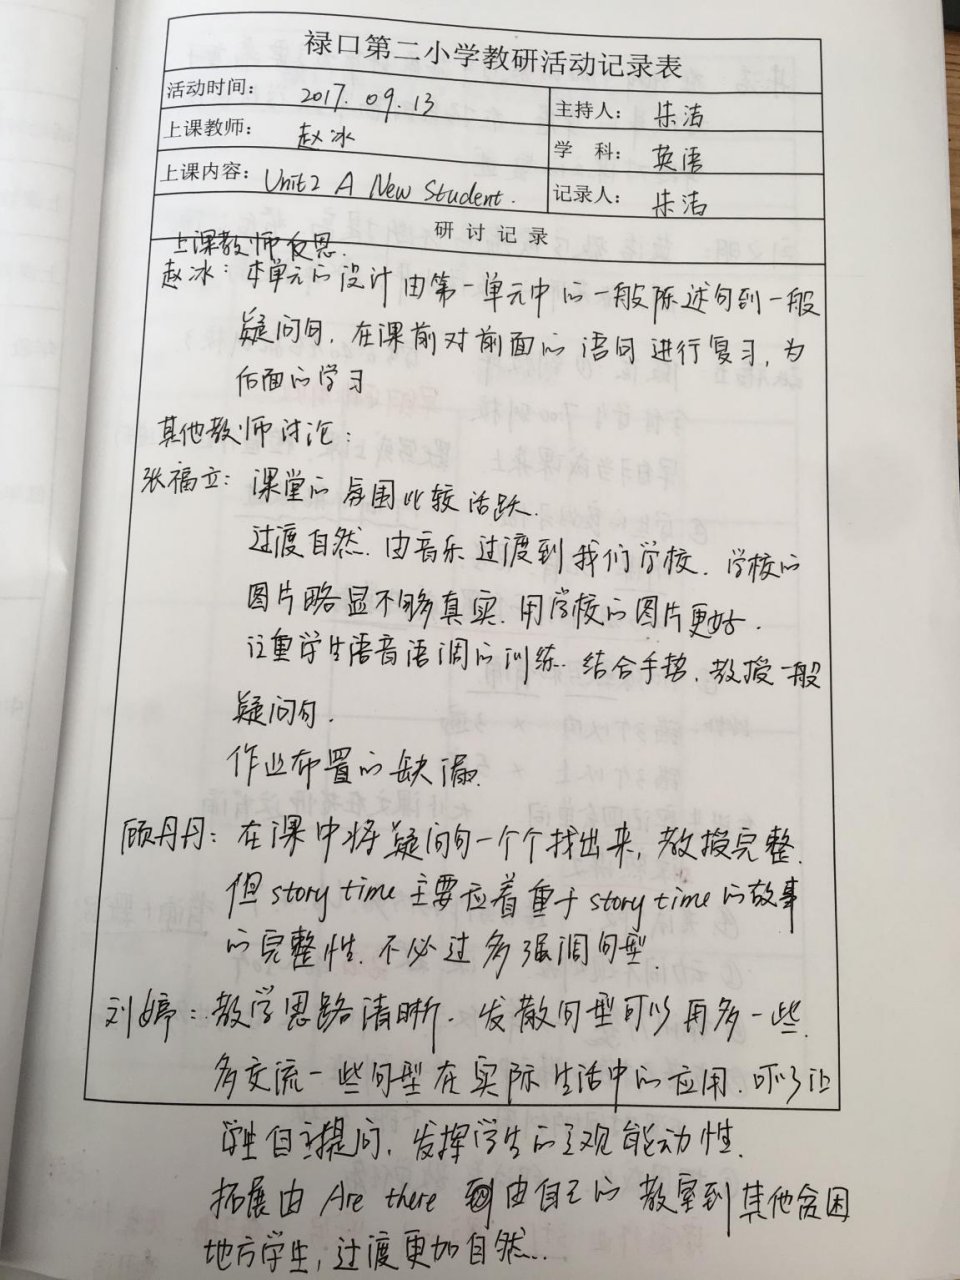 禄口第二小学教研活动记录表
活动时间： 2017.09.13 主持人： 朱洁
上课教师： 赵冰 学 科： 英语
上课内容： Unit2 A New Student. 记录人： 朱洁
研 讨 记 录
上课教师反思.
赵冰：本单元的设计由第一单元中的一般陈述句到一般
疑问句，在课前对前面的语句进行复习，为
后面的学习
其他教师讨论：
张福立：课堂的氛围比较活跃.
过渡自然.由音乐过渡到我们学校.学校的
图片略显不够真实.用学校的图片更好.
注重学生语音语调的训练.结合手势，教授一般
疑问句.
作业布置的缺漏.
顾丹丹：在课中将疑问句一个个找出来，教授完整.
但story time主要应着重于story time的故事
的完整性.不必过多强调句型.
刘婷：教学思路清晰.发散句型可以再多一些.
多交流一些句型在实际生活中的应用.可以让
学生自主提问，发挥学生的主观能动性.
拓展由Are there到由自己的教室到其他贫困
地方学生，过渡更加自然...